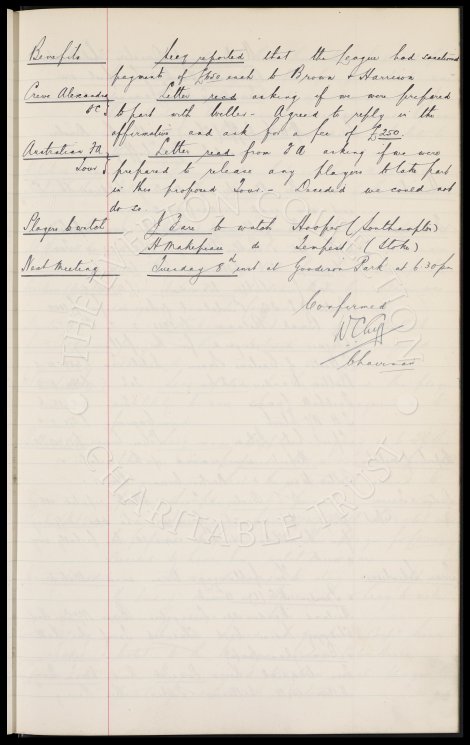 Benefits Secy reported that the League had sanctioned
payment of £650 each to Brown & Harrison
Crewe Alexandra Letter read asking if we were prepared
FC to part with - Agreed to reply in the
affirmative and ask for a fee of £250.
Australian FA Letter read from FA asking if we were
Tour prepared to release any players to take part
in this proposed Tour. - Decided we could not
do so.
Players to watch J Fare to watch Hooper (Southampton)
H Makepeace do Tempest (Stoke)
Next Meeting Tuesday 8th inst at Goodison Park at 6.30pm
Confirmed
W C Cuff
Chairman
THE EVERTON COLLECTION
CHARITABLE TRUST